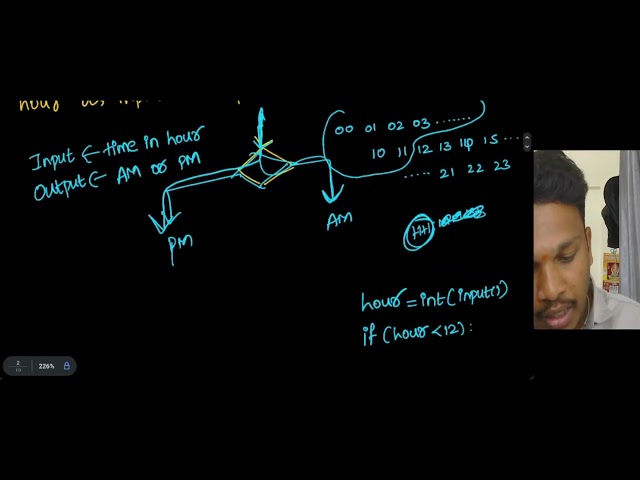 hour as inp
Input ← time in hour
Output ← AM or PM
00 01 02 03 .......
10 11 12 13 14 15 ...
..... 21 22 23
AM
PM
HH
hour = int(input())
if (hour < 12) :
2
10
226%